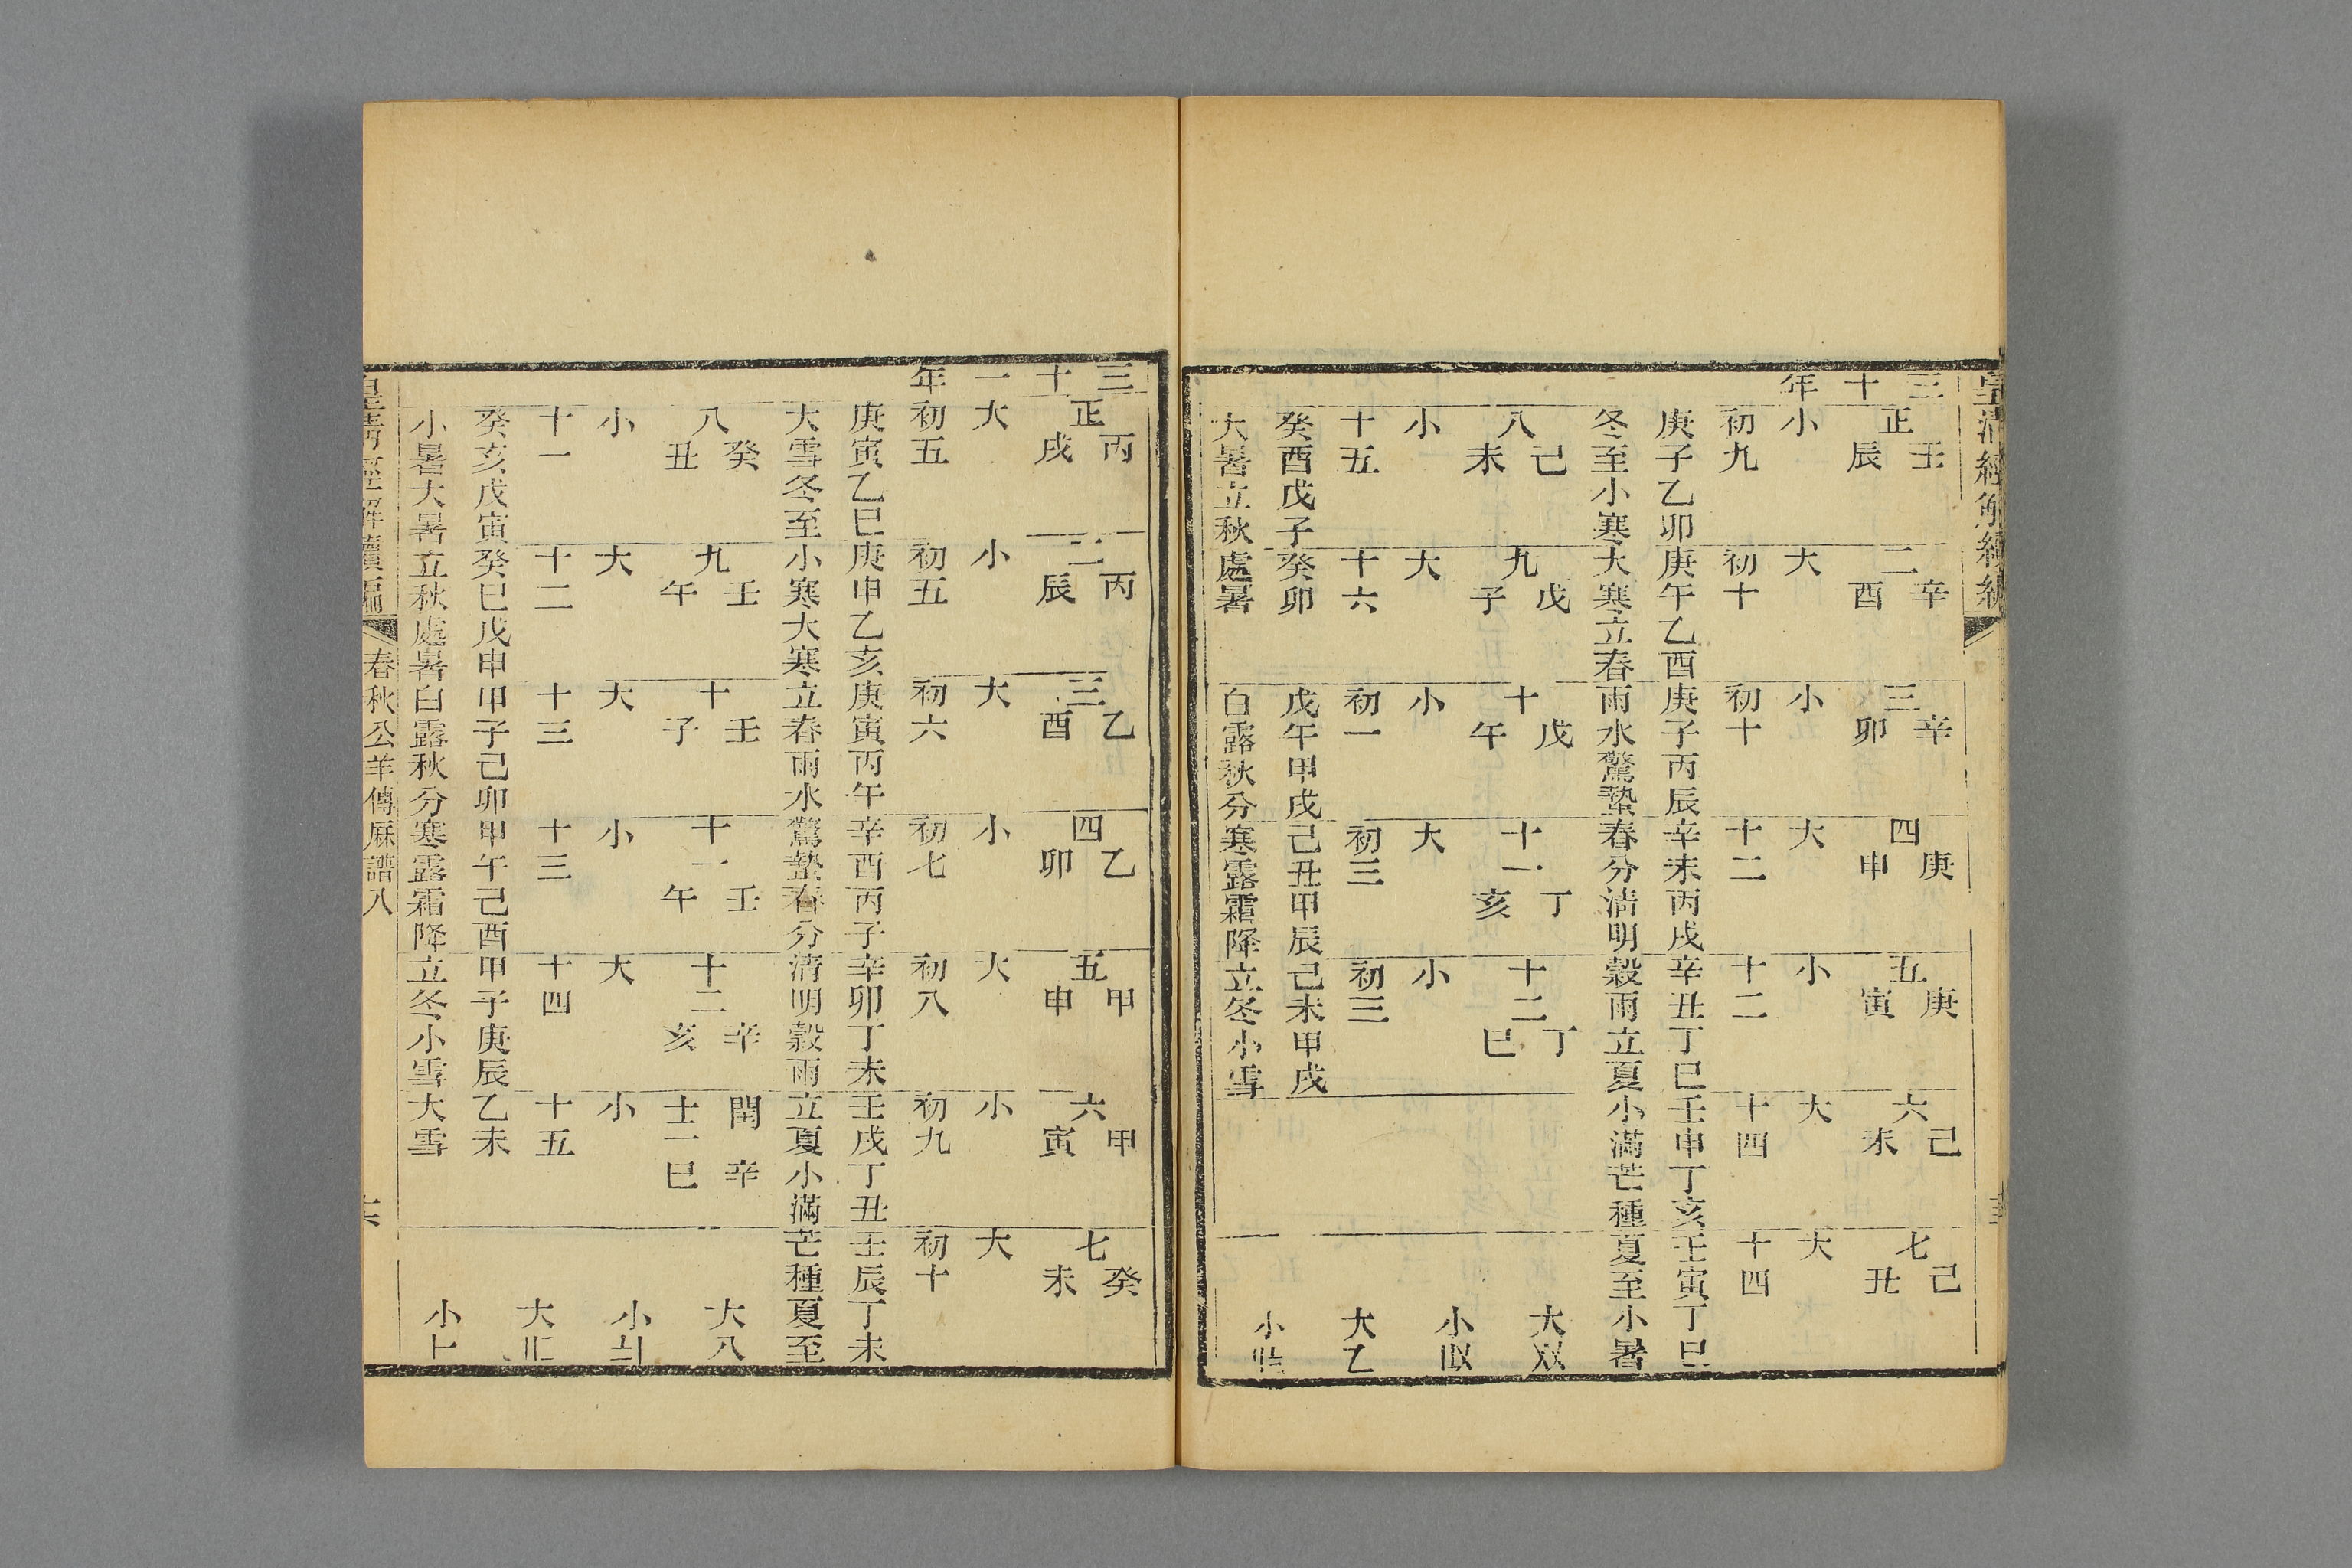 皇清經解續編
三十年
正壬辰 二辛酉 三辛卯 四庚申 五庚寅 六己未 七己丑
小 大 小 大 小 大 大
初九 初十 初十 十二 十二 十四 十四
庚子乙卯庚午乙酉庚子丙辰辛未丙戌辛丑丁巳壬申丁亥壬寅丁巳
冬至小寒大寒立春雨水驚蟄春分清明穀雨立夏小滿芒種夏至小暑
八己未 九戊子 十戊午 十一丁亥 十二丁巳
小 大 小 大 小
十五 十六 初一 初三 初三
癸酉戊子癸卯 戊午甲戌己丑甲辰己未甲戌
大暑立秋處暑 白露秋分寒露霜降立冬小雪
大
小
大
小
三十一年
正丙戌 二丙辰 三乙酉 四乙卯 五甲申 六甲寅 七癸未
大 小 大 小 大 小 大
初五 初五 初六 初七 初八 初九 初十
庚寅乙巳庚申乙亥庚寅丙午辛酉丙子辛卯丁未壬戌丁丑壬辰丁未
大雪冬至小寒大寒立春雨水驚蟄春分清明穀雨立夏小滿芒種夏至
八癸丑 九壬午 十壬子 十一壬午 十二辛亥 閏十二辛巳
小 大 大 小 大 小
十一 十二 十三 十三 十四 十五
癸亥戊寅癸巳戊申甲子己卯甲午己酉甲子庚辰乙未
小暑大暑立秋處暑白露秋分寒露霜降立冬小雪大雪
大
小
大
小
皇清經解續編 春秋公羊傳厤譜八